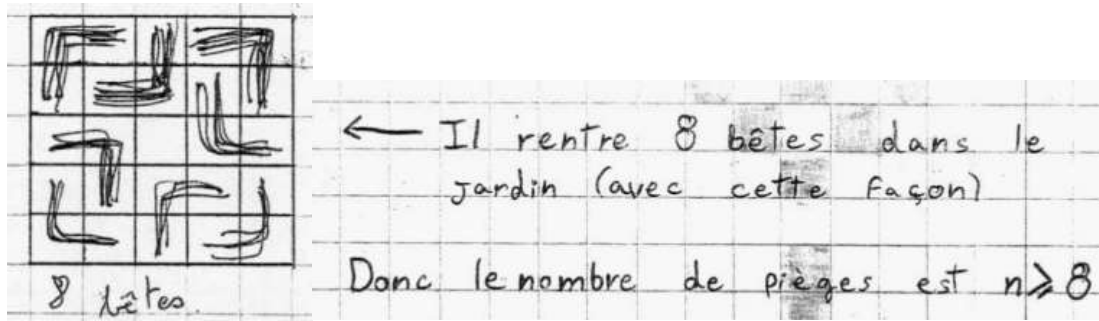 ← Il rentre 8 bêtes dans le
jardin (avec cette façon)
Donc le nombre de pièges est n ⩾ 8
8 bêtes.